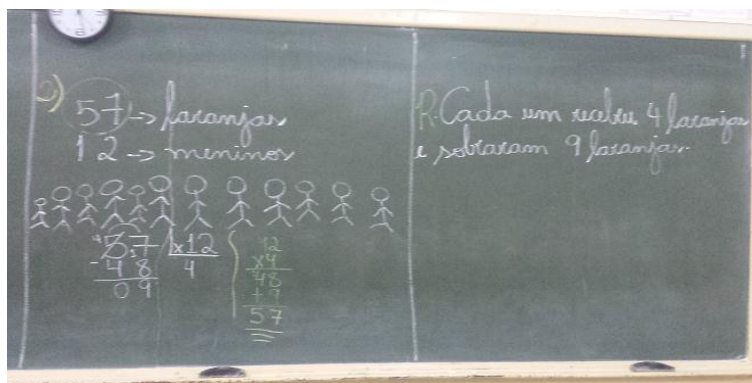 e) 57 -> laranjas
12 -> meninos
57 |x12
-48 4
09
12
x4
48
+9
57
R: Cada um recebeu 4 laranjas
e sobraram 9 laranjas.